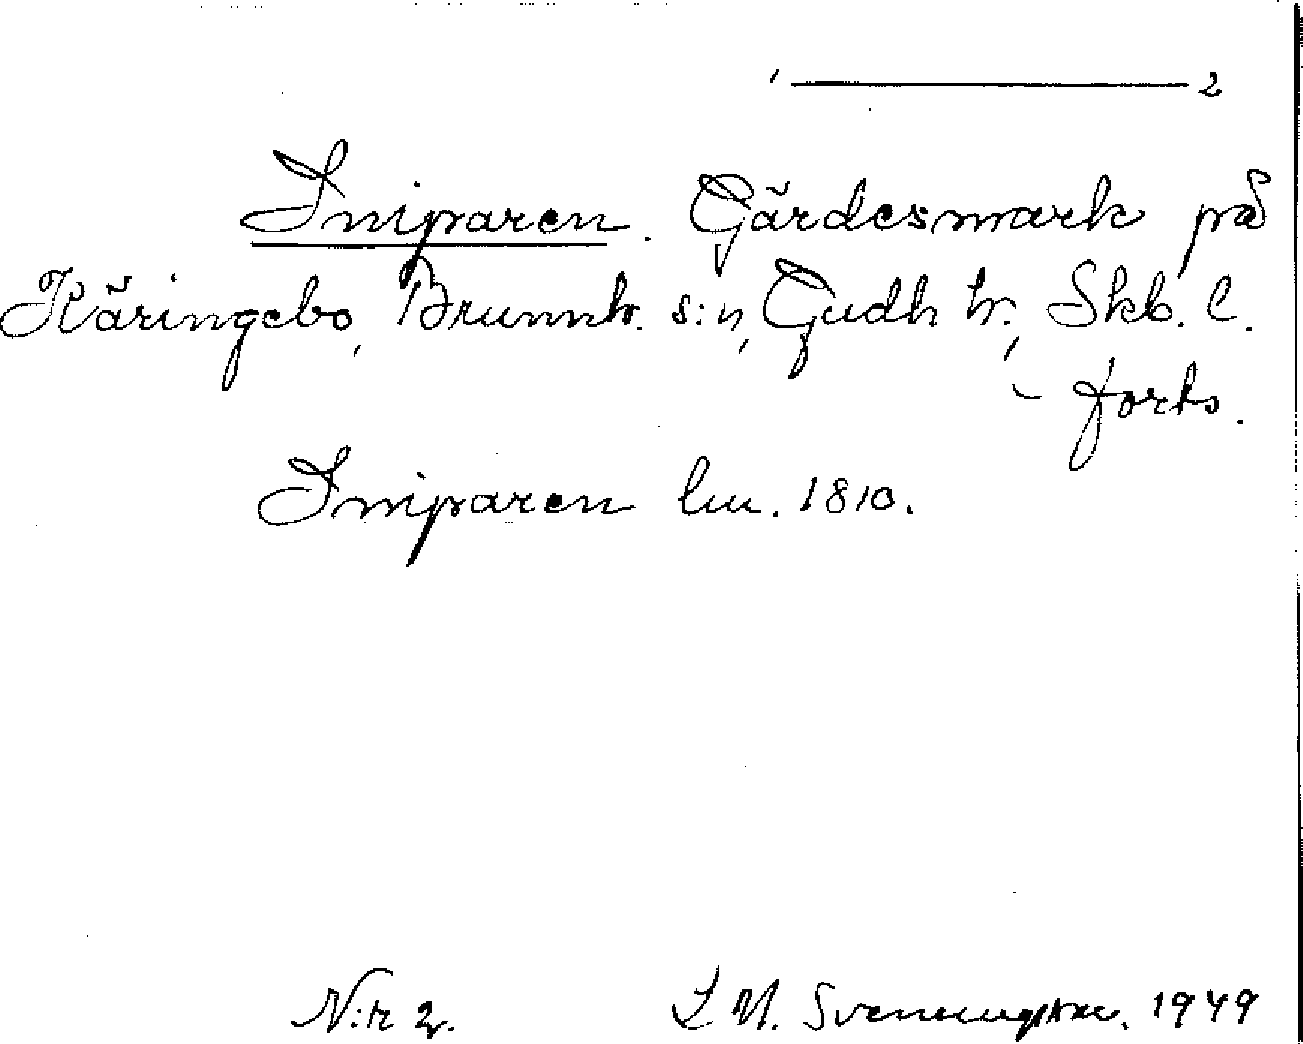 2
Sniparen. Gärdesmark på
Käringebo, Brunnh. s:n, Gudh h:, Skb. l.
- forts.
Sniparen lm. 1810.
N:r 2. 1949